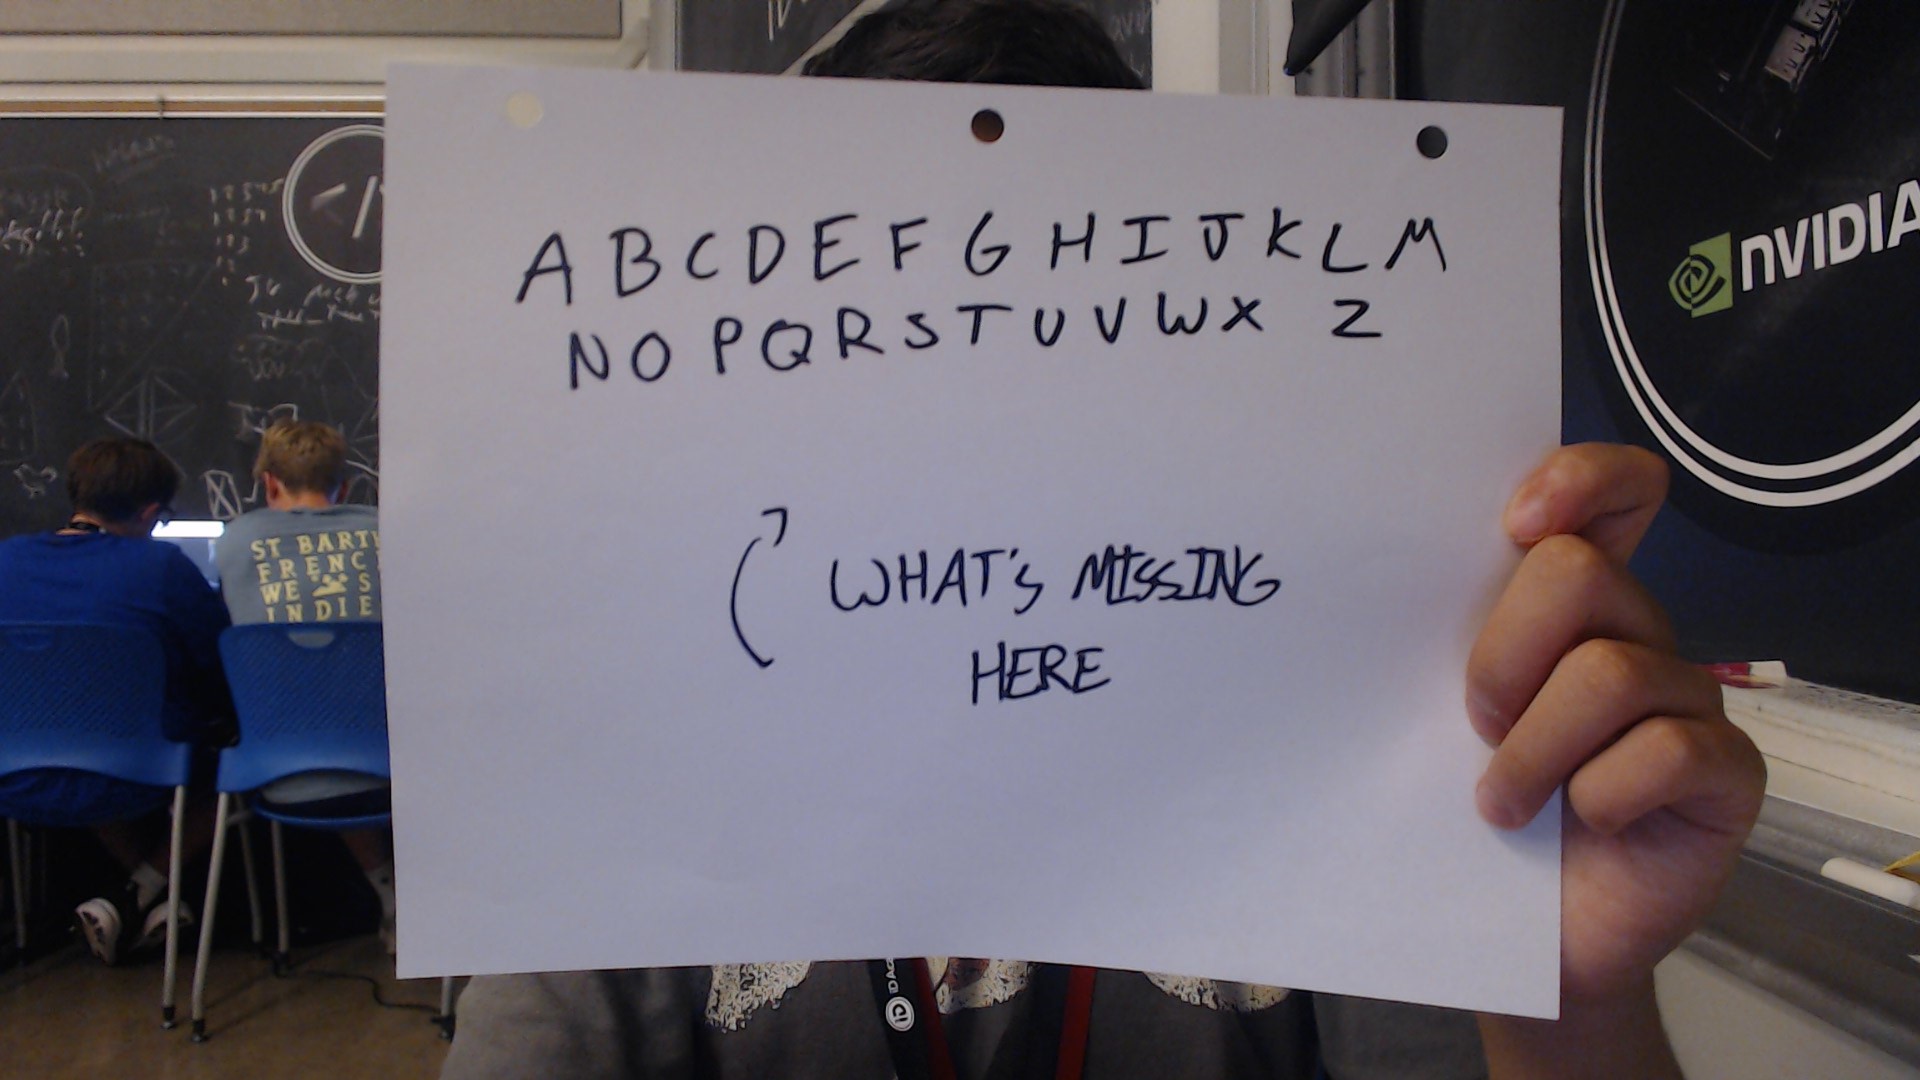 A B C D E F G H I J K L M
N O P Q R S T U V W X Z
WHAT'S MISSING
HERE
NVIDIA
</>
ST BART
FRENC
WE S
INDIE
iD